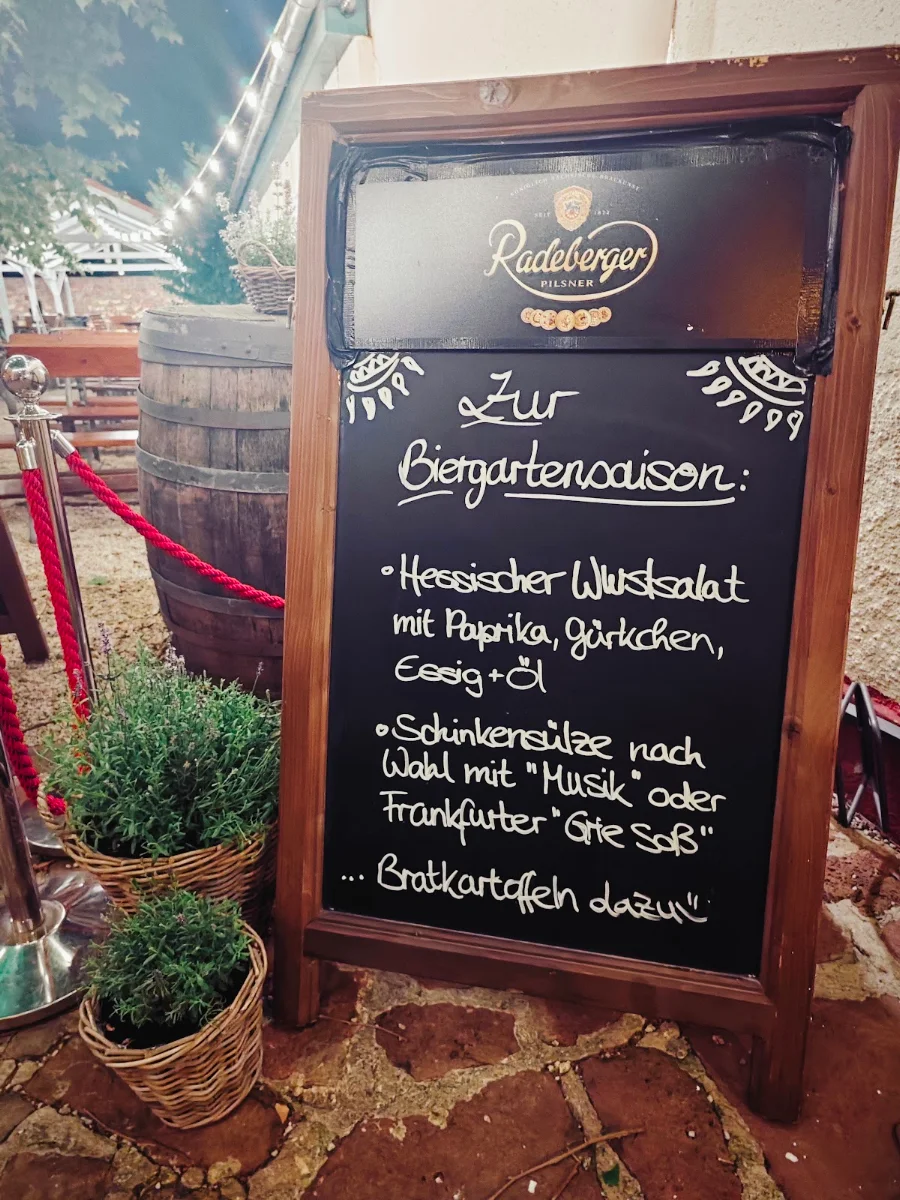 SEIT 1872
Radeberger
PILSNER
Zur
Biergartensaison:
• Hessischer Wurstsalat
mit Paprika, Gürkchen,
Essig + Öl
• Schinkensülze nach
Wahl mit "Musik" oder
Frankfurter "Grie Soß"
... Bratkartoffeln dazu